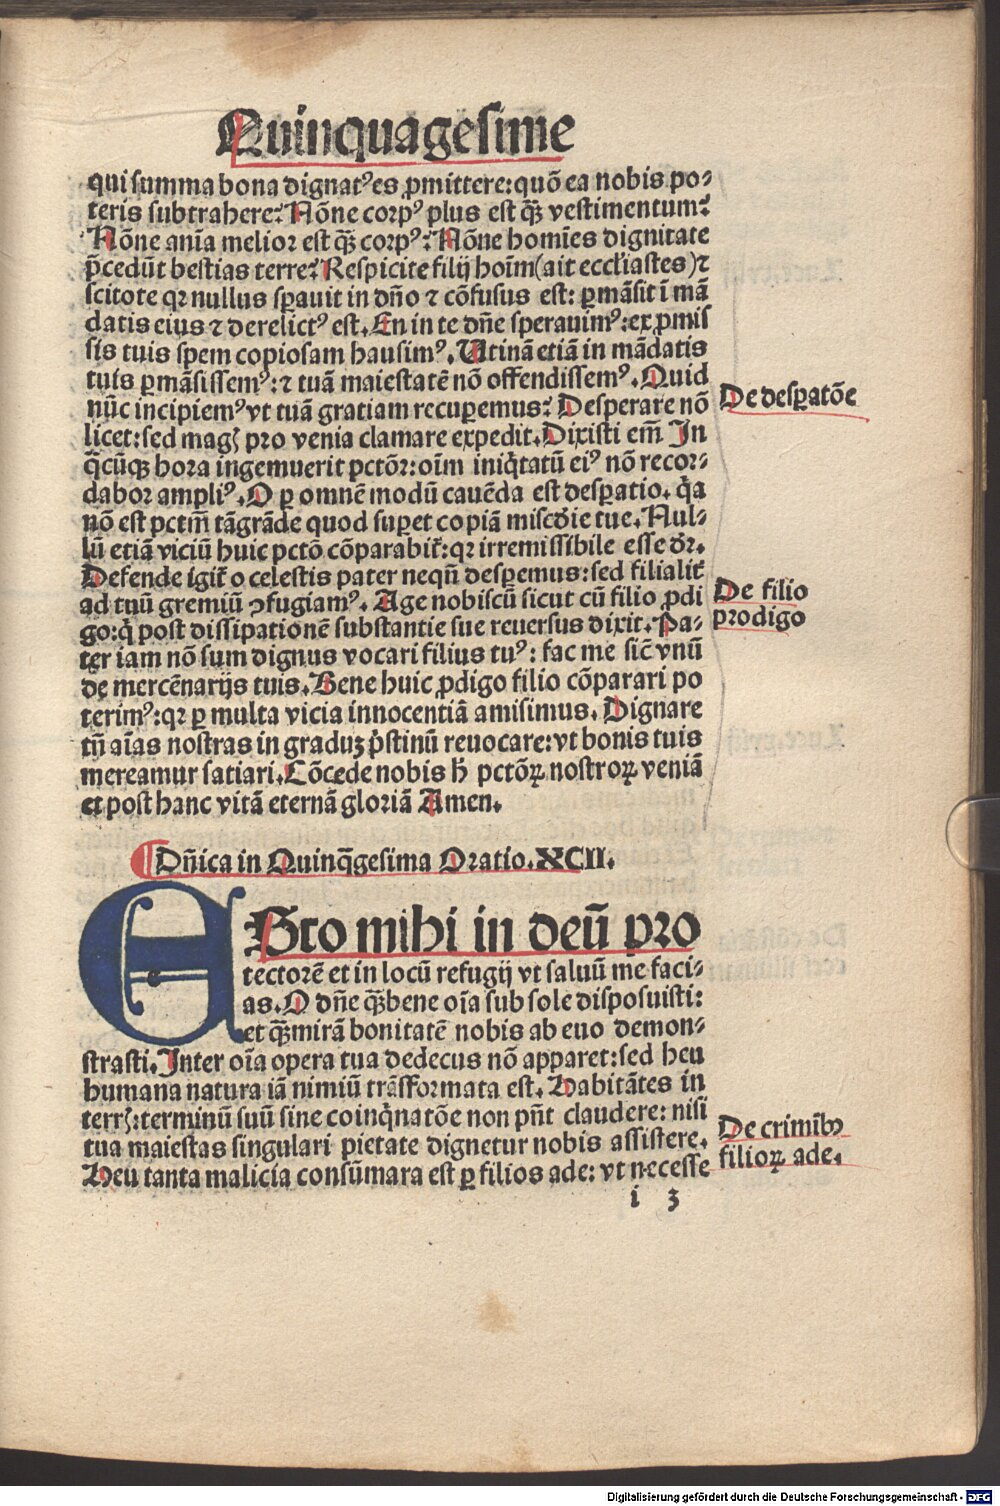 Quinquagesime
qui summa bona dignatꝰ es ꝓmittere: quõ ea nobis po⸗
teris subtrahere? Nõne corpꝰ plus est q̃ꝫ vestimentum?
Nõne aĩa melior est q̃ꝫ corpꝰ? Nõne homĩes dignitate
p̃cedũt bestias terre? Respicite filij hoĩm (ait eccl'iastes) ⁊
scitote qꝛ nullus sꝑauit in dño ⁊ cõfusus est: ꝑmãsit ĩ mã
datis eius ⁊ derelictꝰ est. En in te dñe sperauimꝰ: ex ꝓmis
sis tuis spem copiosam hausimꝰ. Utinã etiã in mãdatis
tuis ꝑmãsissemꝰ: ⁊ tuã maiestatẽ nõ offendissemꝰ. Quid
nũc incipiemꝰ vt tuã gratiam recuꝑemus? Desperare nõ
licet: sed magꝭ pro venia clamare expedit. Dixisti em̃ In
q̃cũqꝫ hora ingemuerit pctõr: oĩm iniq̃tatũ eiꝰ nõ recor⸗
dabor ampliꝰ. O ꝑ omnẽ modũ cauẽda est desꝑatio. q̃a
nõ est pctm̃ tã grãde quod suꝑet copiã mis̃cdie tue. Nul⸗
lũ etiã viciũ huic pctõ cõparabit̃: qꝛ irremissibile esse dr̃.
Defende igit̃ o celestis pater neqñ desꝑemus: sed filialit̃
ad tuũ gremiũ ↄfugiamꝰ. Age nobiscũ sicut cũ filio ꝓdi
go: q̃ post dissipationẽ substantie sue reuersus dixit. Pa⸗
ter iam nõ sum dignus vocari filius tuꝰ: fac me sic̃ vnũ
de mercẽnarijs tuis. Bene huic ꝓdigo filio cõparari po
terimꝰ: qꝛ ꝑ multa vicia innocentiã amisimus. Dignare
tñ aĩas nostras in graduꝫ p̃stinũ reuocare: vt bonis tuis
mereamur satiari. Cõcede nobis h̃ pctõꝝ nostroꝝ veniã
et post hanc vitã eternã gloriã Amen.
De desꝑatõe
De filio
prodigo
¶ Dñica in Quinq̃gesima Oratio. XCII.
ESto mihi in deũ pro
tectorẽ et in locũ refugij vt saluũ me faci⸗
as. O dñe q̃ꝫ bene oĩa sub sole disposuisti:
et q̃ꝫ mirã bonitatẽ nobis ab euo demon⸗
strasti. Inter oĩa opera tua dedecus nõ apparet: sed heu
humana natura iã nimiũ trãsformata est. Habitãtes in
terrꝭ: terminũ suũ sine coinq̃natõe non pñt claudere: nisi
tua maiestas singulari pietate dignetur nobis assistere.
Heu tanta malicia consũmara est ꝑ filios ade: vt necesse
De crimĩbꝰ
filioꝝ ade.
i 3
Digitalisierung gefördert durch die Deutsche Forschungsgemeinschaft - DFG